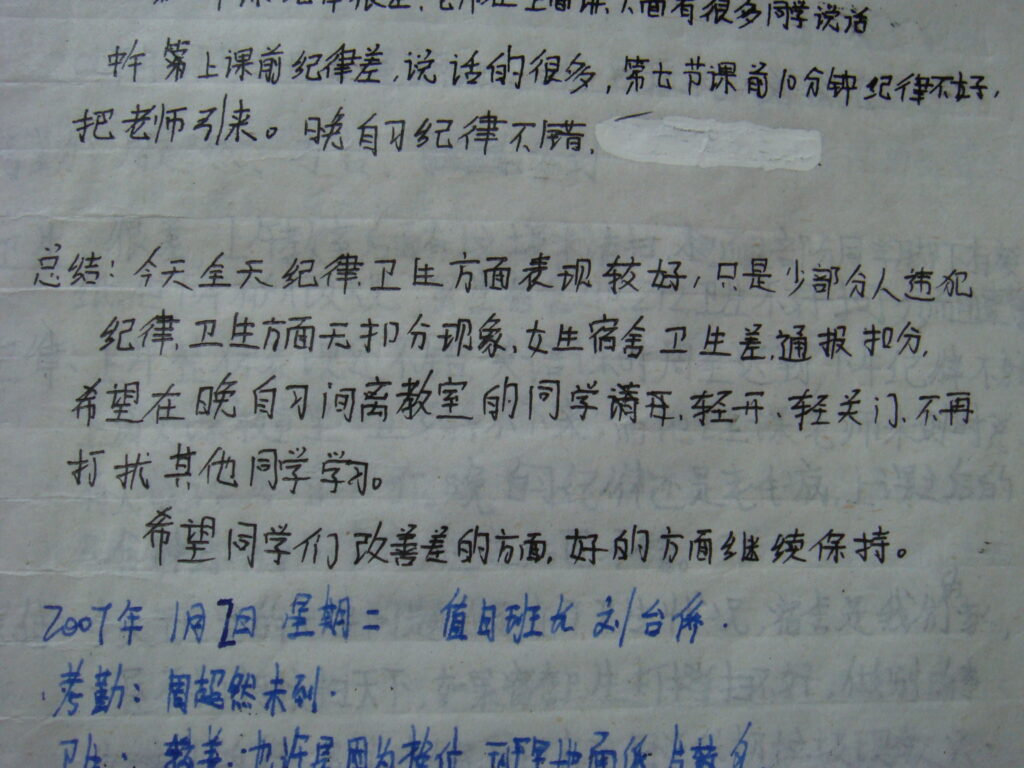 课纪律很差,老师在上面讲,下面有很多同学说话.
中午 第 上课前纪律差,说话的很多,第七节课前10分钟纪律不好,
把老师引来。晚自习纪律不错.
总结:今天全天纪律.卫生方面表现较好,只是少部分人违犯
纪律,卫生方面无扣分现象、女生宿舍卫生差,通报扣分,
希望在晚自习间离教室的同学请 轻开、轻关门、不再
打扰其他同学学习。
希望同学们改善差的方面,好的方面继续保持。
2007年1月2日 星期二 值日班长 刘台侨.
考勤:周超然未到.
卫生:较差.也许是因为 地面纸片较多